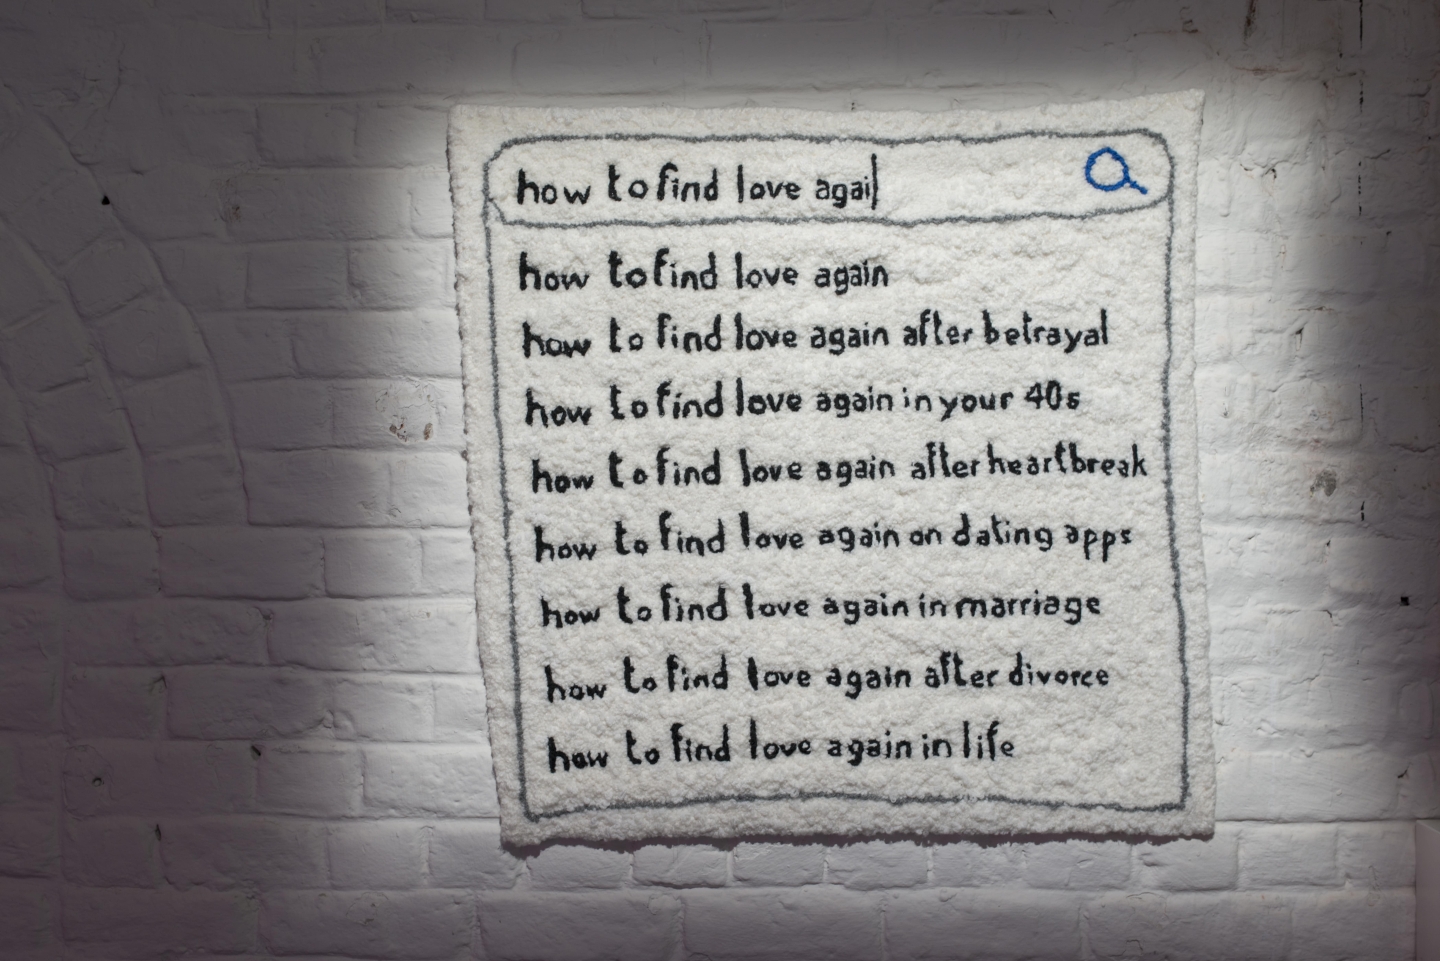 how to find love agai
how to find love again
how to find love again after betrayal
how to find love again in your 40s
how to find love again after heartbreak
how to find love again on dating apps
how to find love again in marriage
how to find love again after divorce
how to find love again in life